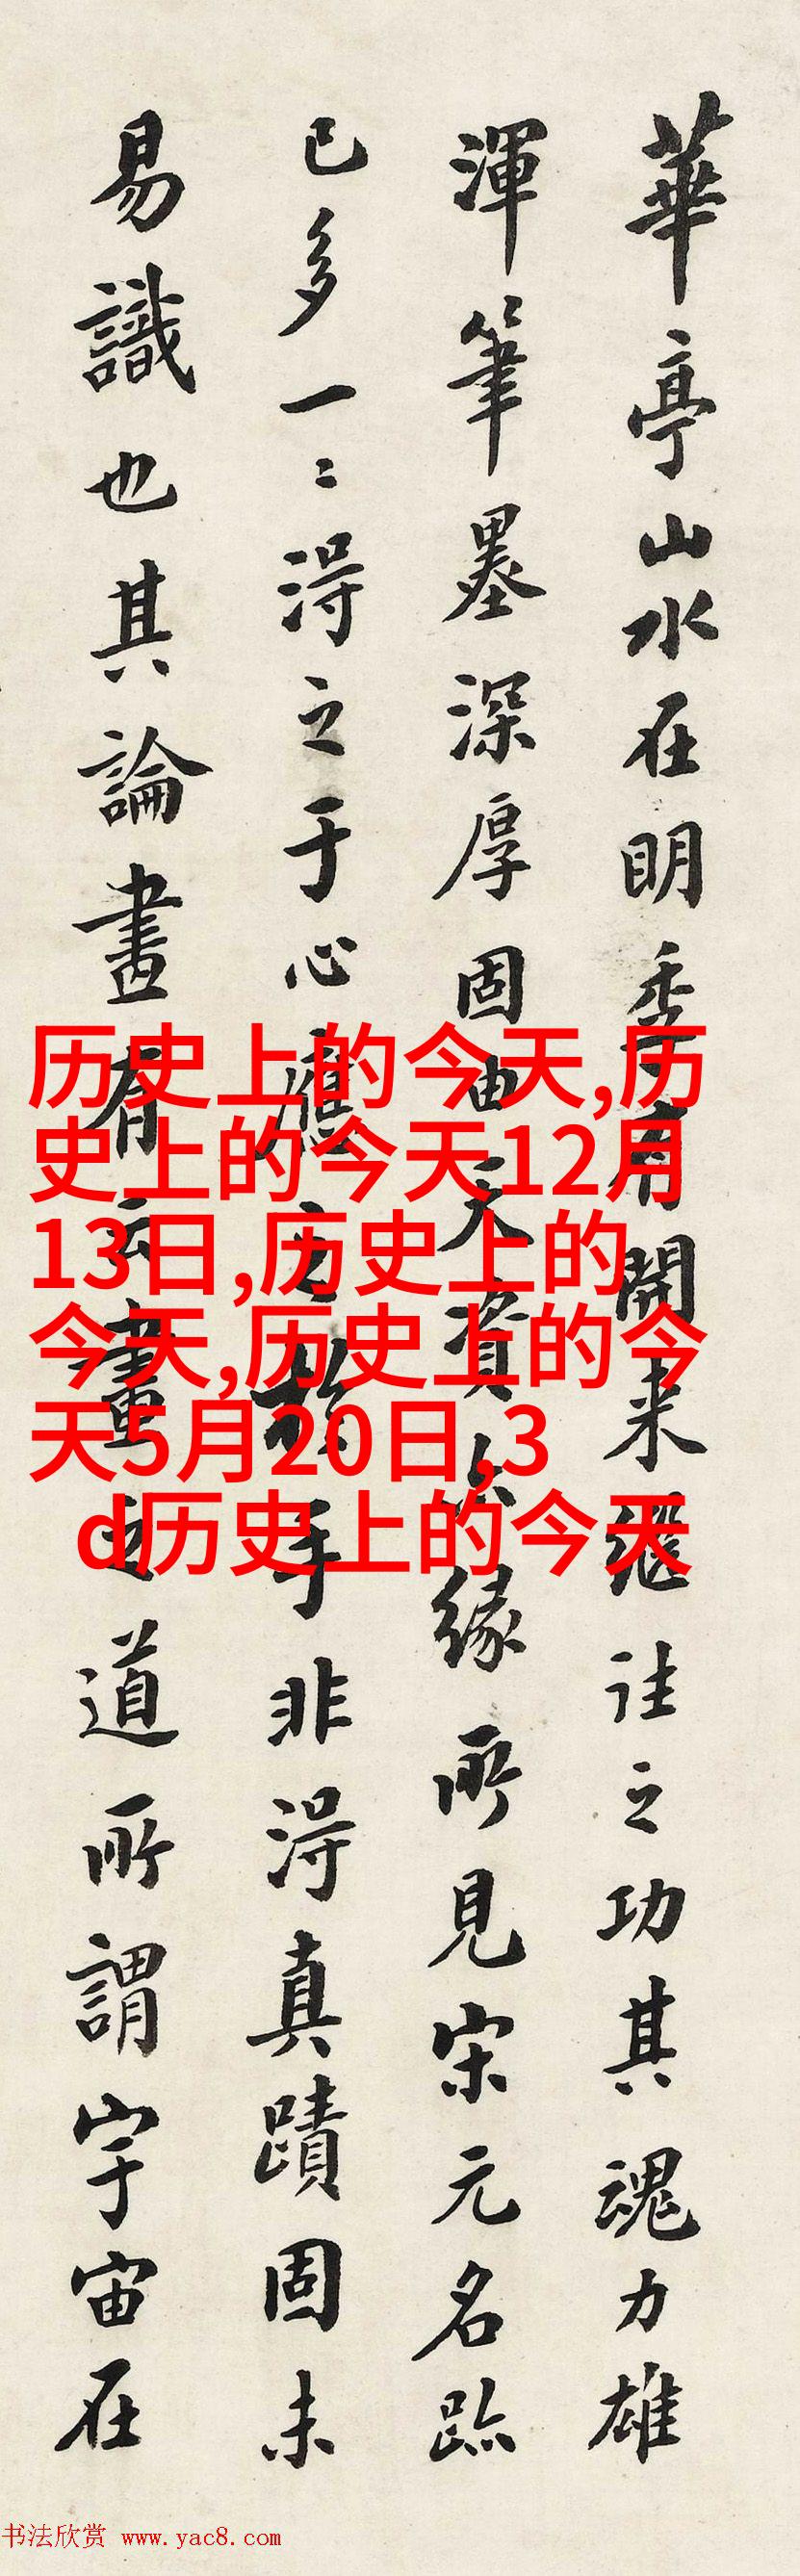 華亭山水在明季有開来繼往之功其魂力雄
渾筆墨深厚固由天資亦緣所見宋元名跡
已多一二得之于心應之於手非得真蹟固未
易識也其論畫有云畫之道所謂宇宙在
历史上的今天,历
史上的今天12月
13日,历史上的
今天,历史上的今
天5月20日,3
d历史上的今天
书法欣赏 www.yac8.com